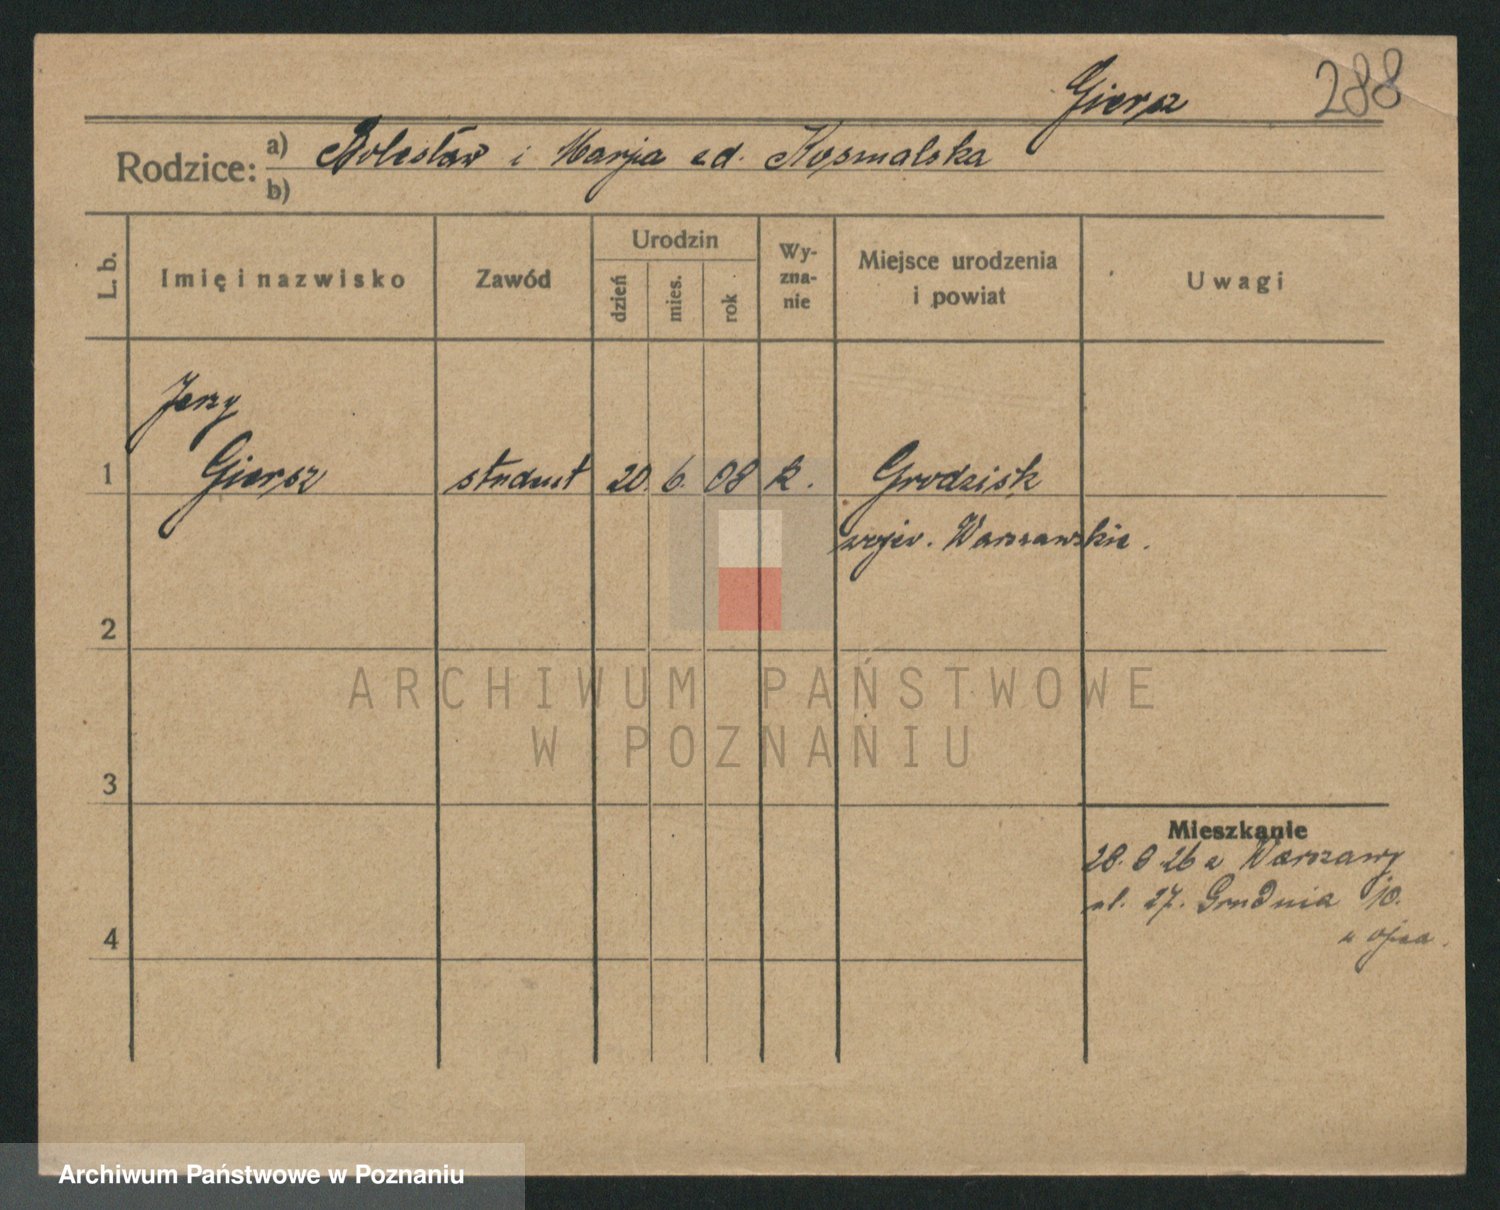 Giersz 288
Rodzice: a) Bolesław i Marja zd. Kosmalska
b)
L. b. Imię i nazwisko Zawód Urodzin dzień mies. rok Wy-zna-nie Miejsce urodzenia i powiat Uwagi
Jerzy
1 Giersz student 20. 6. 08 k. Grodzisk
wojew. Warszawskie.
2
ARCHIWUM PAŃSTWOWE
W POZNANIU
3
Mieszkanie
28. 8 26 z Warszawy
ul. 27. Grudnia 10.
4
u ojca.
Archiwum Państwowe w Poznaniu